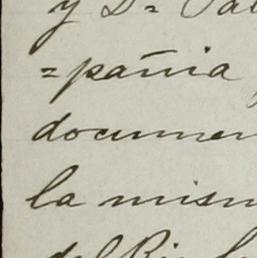 y Dn
=pañia
documen
la mism
del Rio